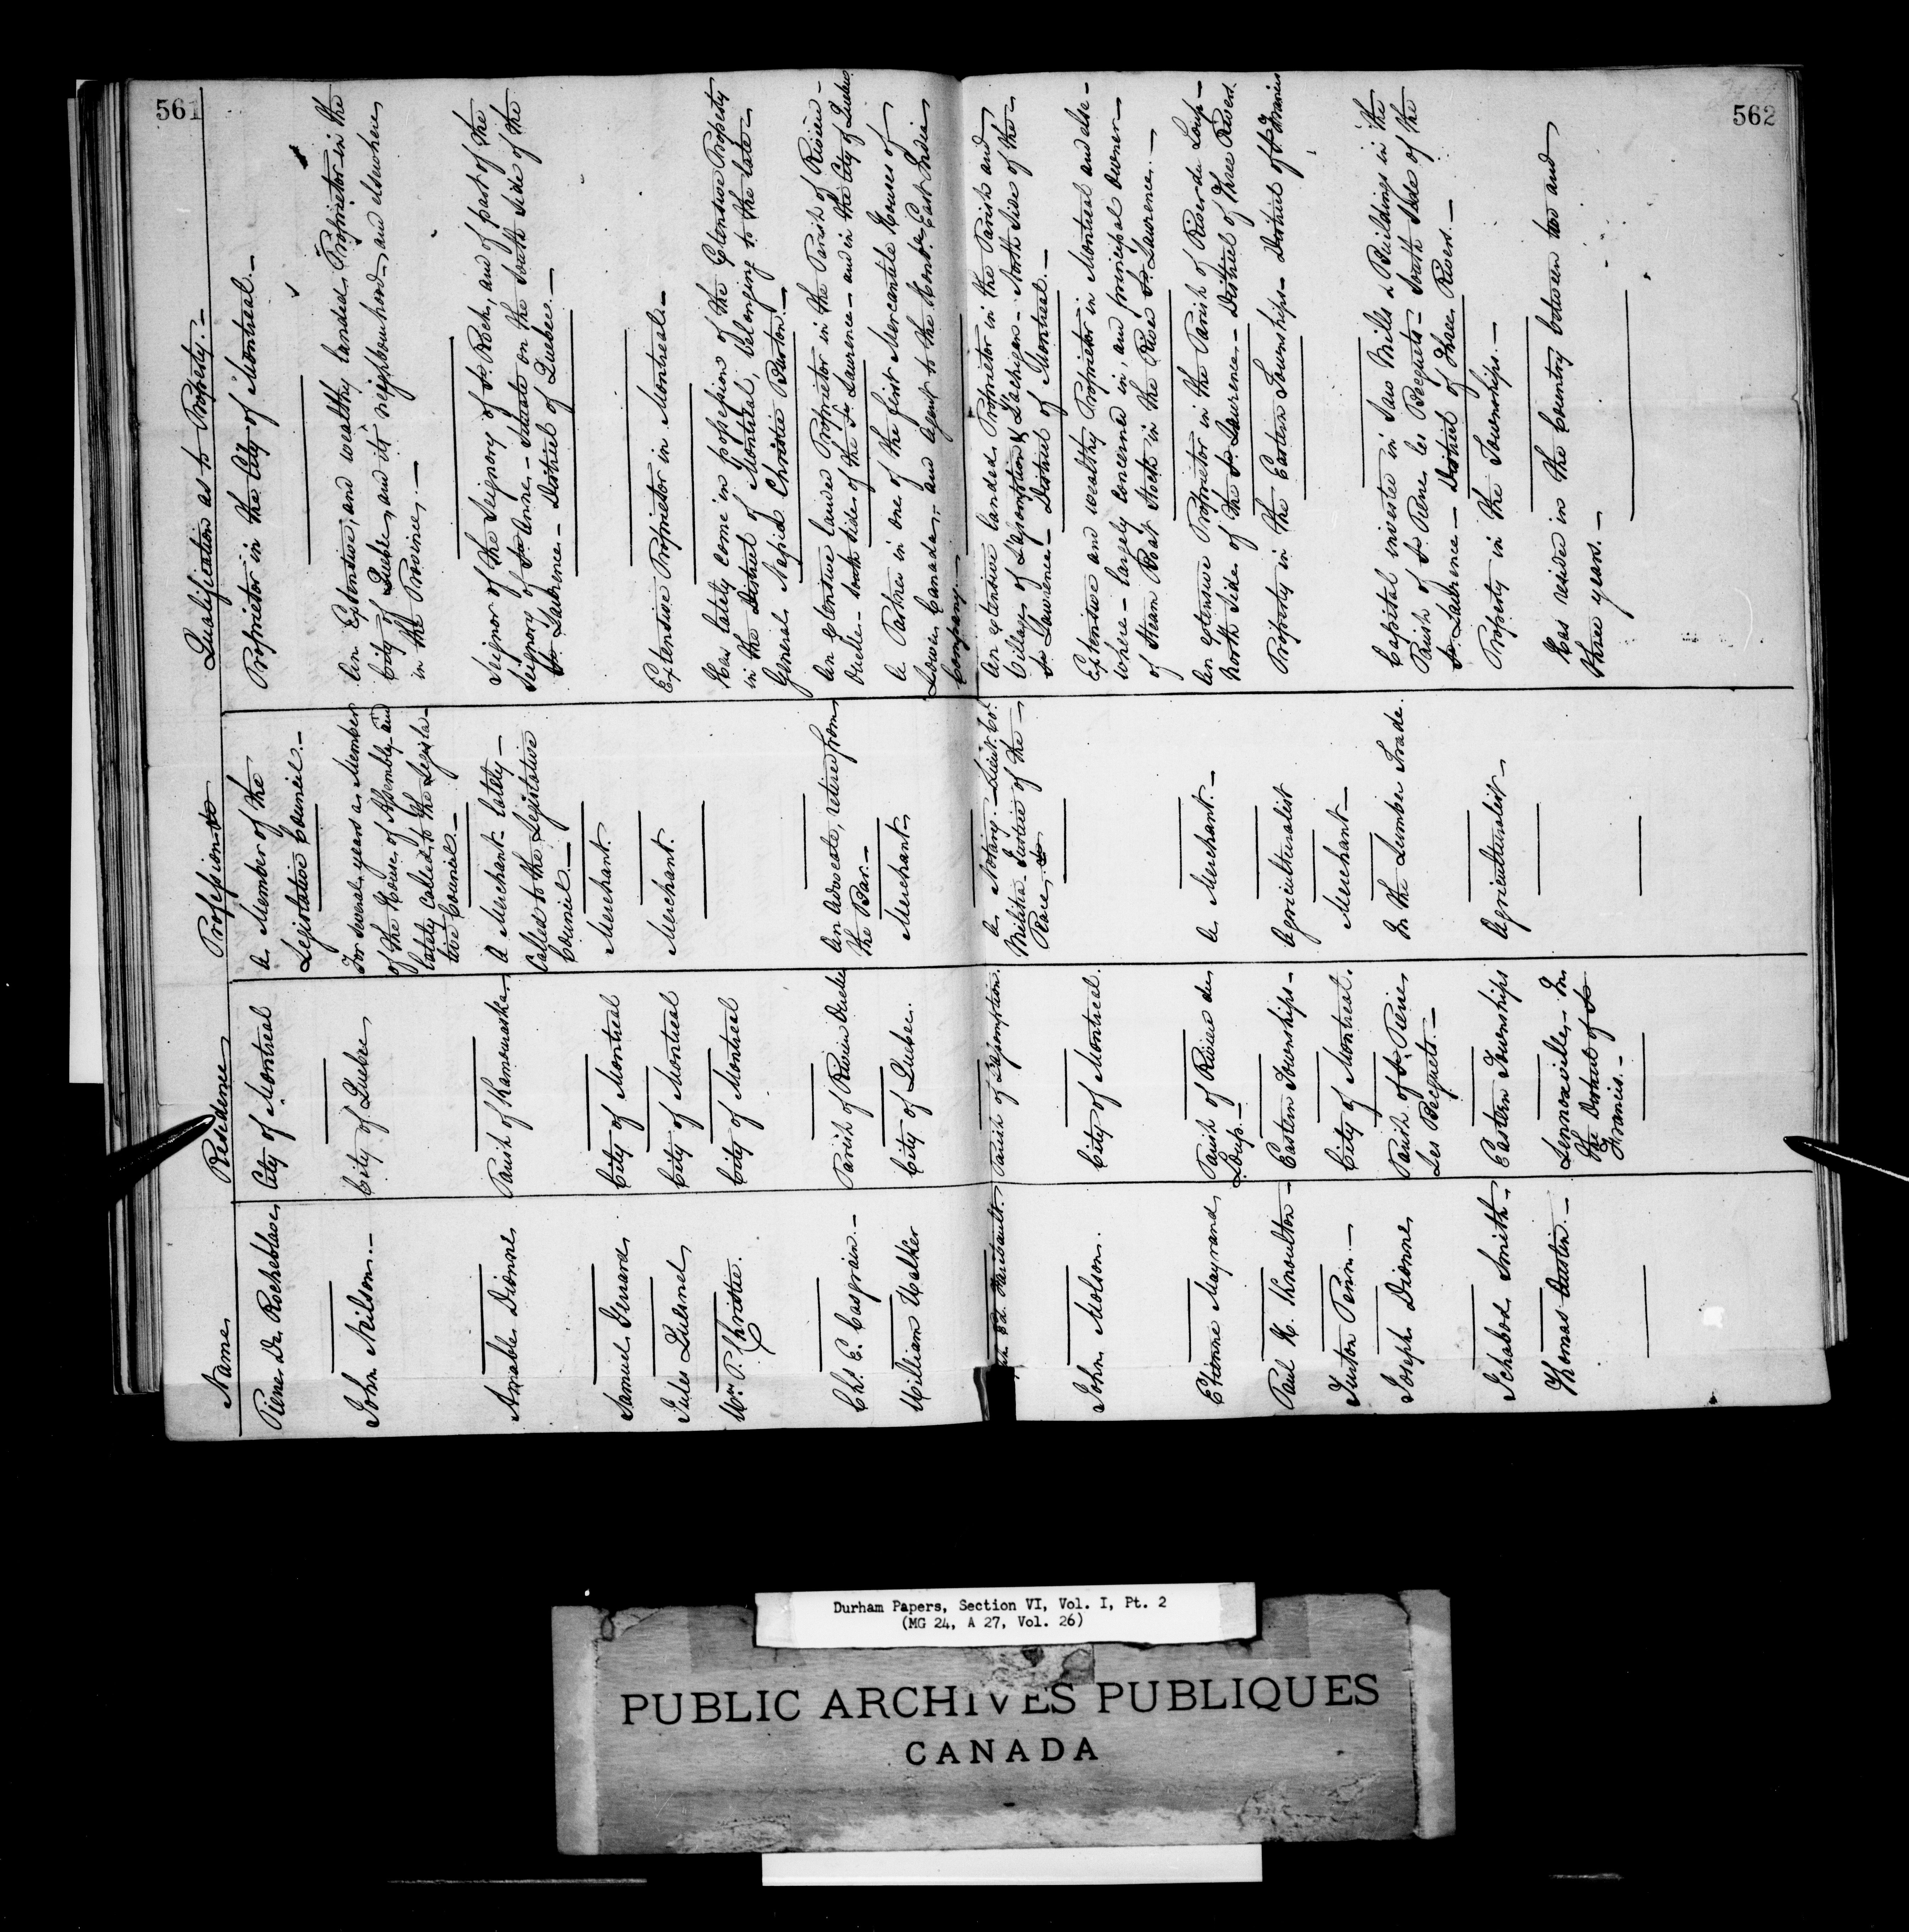 561
Name
Residence
Profession &c
Qualification as to Property.—
Pierre De Rocheblave
City of Montreal
A Member of the
Legislative Council.—
Proprietor in the City of Montreal.—
John Neilson.—
City of Quebec
For several years a Member
of the House of Assembly and
lately called to the Legisla-
tive Council.—
An Extensive, and wealthy landed Proprietor in the
City of Quebec, and its neighbourhood, and elsewhere
in the Province.—
Amable Dionne
Parish of Kamouraska
A Merchant lately—
Called to the Legislative
Council.—
Seignor of the Seignory of St. Roch, and of part of the
Seignory of St. Anne— Situate on the South Side of the
St. Lawrence— District of Quebec.—
Samuel Gerrard
City of Montreal
Merchant.
Jules Quesnel
City of Montreal
Merchant.
Extensive Proprietor in Montreal.—
Wm. P. Christie.
City of Montreal
Has lately come in possession of the Extensive Property
in the District of Montreal, belonging to the late—
General Napier Christie Burton.—
Chs. E. Casgrain.—
Parish of Rivière Ouelle
An Advocate, retired from
the Bar.—
An extensive landed Proprietor in the Parish of Rivière—
Ouelle— South Side of the St. Lawrence— and in the City of Quebec
William Walker
City of Quebec.
Merchant—
A Partner in one of the first Mercantile Houses of
Lower Canada,— and Agent to the Honble. East India
Company.—
562
Ed. Faribault.
Parish of L'Assomption.
A Notary.— Lieut. Col.
Militia— Justice of the—
Peace &c
An extensive landed Proprietor in the Parish and
Village of L'Assomption & Lachigan— North Side of the—
St. Lawrence— District of Montreal.—
John Molson.
City of Montreal.
Extensive and wealthy Proprietor in Montreal and else-
where— largely concerned in, and principal owner—
of Steam Boat Stock in the River St. Lawrence.—
Etienne Mayrand
Parish of Rivière du
Loup.—
A Merchant.—
An extensive Proprietor in the Parish of River du Loup—
North Side of the St. Lawrence.— District of Three Rivers.
Paul H. Knoulton—
Eastern Townships—
Agriculturalist
Property in the Eastern Townships— District of St. Francis
Turton Penn.—
City of Montreal.
Merchant—
Joseph Dionne
Parish of St. Pierre
Les Becquets.—
In the Lumber Trade.
Capital invested in Saw Mills & Buildings in the
Parish of St. Pierre les Becquets— South Side of the
St. Lawrence— District of Three Rivers.—
Ichabod Smith—
Eastern Townships
Agriculturalist—
Property in the Townships.—
Thomas Austin.—
Lennoxville,— In
the District of St
Francis.—
Has resided in the Country between two and
three years.—
Durham Papers, Section VI, Vol. I, Pt. 2
(MG 24, A 27, Vol. 26)
PUBLIC ARCHIVES PUBLIQUES
CANADA